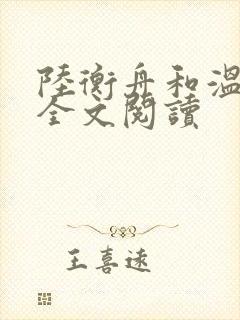 陸衡舟和溫
全文閱讀
王喜遠